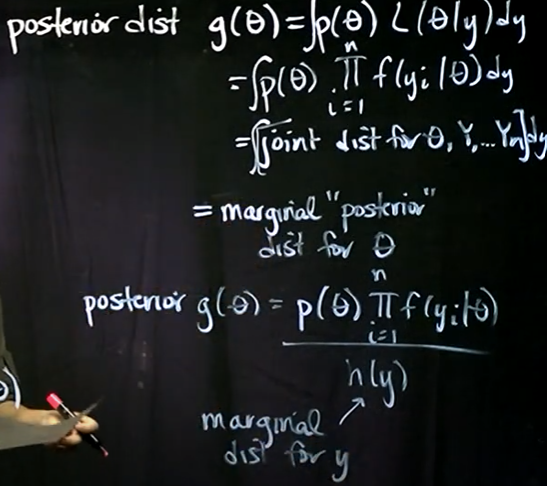 posterior dist g(θ) = ∫p(θ) L(θ|y)dy
= ∫p(θ) n∏i=1 f(yi|θ)dy
= ∫[joint dist for θ, Y, ... Yn]dy
= marginal "posterior"
dist for θ
posterior g(θ) = p(θ) n∏i=1 f(yi|θ)
h(y)
marginal
dist for y